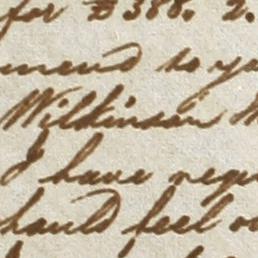 for $388. 2.
mend to yo
Wilkinson
I have requ
hould feel